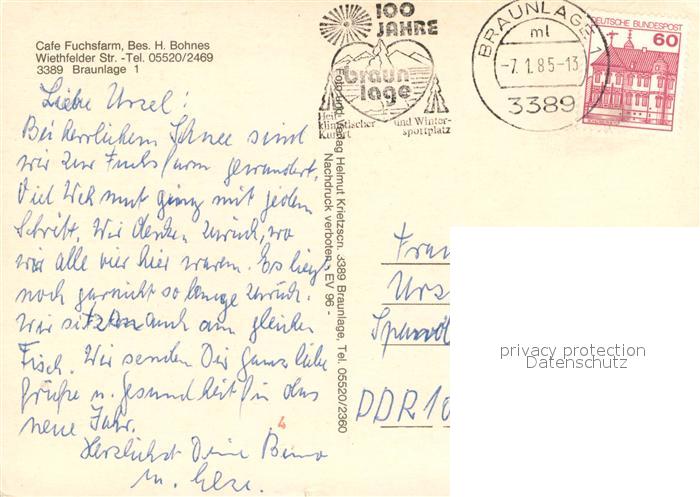 Cafe Fuchsfarm, Bes. H. Bohnes
Wiethfelder Str. -Tel. 05520/2469
3389 Braunlage 1
Liebe Ursel!
Bei herrlichem Schnee sind
wir zur Fuchsfarm gewandert.
Viel Wehmut ging mit jedem
Schritt. Wir denken zurück, wo
wir alle vier hier waren. Es liegt
noch garnicht so lange zurück.
Wir sitzen auch am gleichen
Tisch. Wir senden Dir ganz liebe
Grüße u. Gesundheit für das
neue Jahr.
Herzlichst Deine
u. Else.
4
Foto und Verlag Helmut Krietzsch, 3389 Braunlage, Tel. 05520/2360
Nachdruck verboten - EV 96 -
100
JAHRE
braun
lage
Heil-
klimatischer
Kurort
und Winter-
sportplatz
BRAUNLAGE 1
ml
-7.1.85-13
3389
DEUTSCHE BUNDESPOST
60
Frau
Urs
DDR 10
privacy protection
Datenschutz